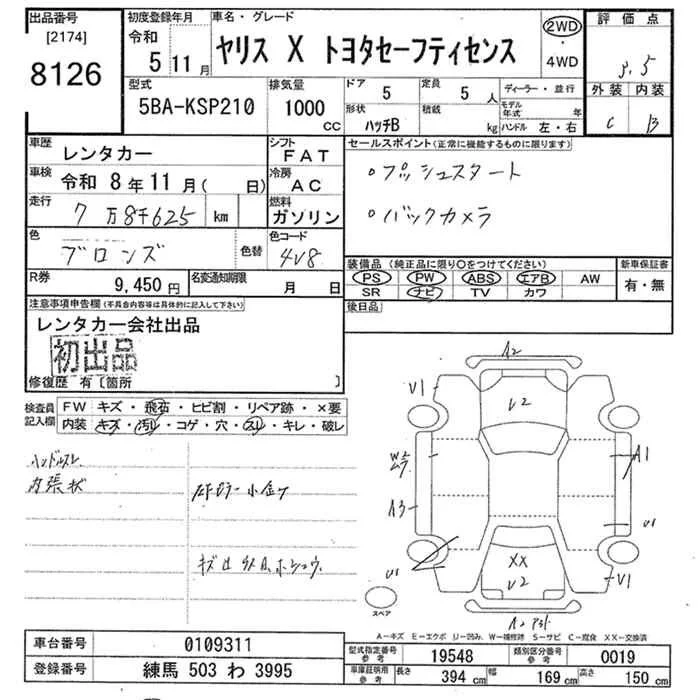 出品番号
[2174]
8126
初度登録年月
令和
5 11月
車名・グレード
ヤリス X トヨタセーフティセンス
2WD
・
4WD
評価点
3.5
外装 内装
C B
型式
5BA-KSP210
排気量
1000
CC
ドア
5
定員
5人
形状
ハッチB
積載
kg
ディーラー・並行
モデル年式 年
ハンドル 左・右
車歴
レンタカー
シフト
FAT
車検
令和 8年11月( 日)
冷房
AC
走行
7万8千625 km
燃料
ガソリン
色
ブロンズ
色替
色コード
4V8
R券
9,450円
名変通知期限
月 日
セールスポイント(正常に機能するものに限ります)
○プッシュスタート
○バックカメラ
装備品 (純正品に限り○をつけてください)
PS PW ABS エアB AW
SR ナビ TV カワ
新車保証書
有・無
後日品
注意事項申告欄(不具合内容等は具体的に記入して下さい)
レンタカー会社出品
初出品
修復歴 有〔箇所 〕
検査員
記入欄
FW キズ・飛石・ヒビ割・リペア跡・×要
内装 キズ・汚レ・コゲ・穴・スレ・キレ・破レ
ハンドルスレ
内張状
キズ
A2
V1
V2
A1
A3
U1
XX
V2
V1
U1
スペア
A-キズ E-エクボ U-凹み、W-補修跡 S-サビ C-腐食 XX-交換済
車台番号
0109311
登録番号
練馬 503 わ 3995
型式指定番号
参考
19548
類別区分番号
参考
0019
車庫証明用
参考
長さ 394 cm
幅 169 cm
高さ 150 cm